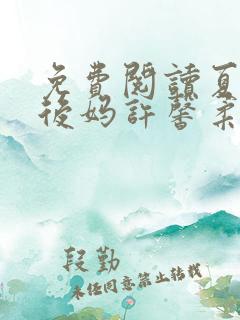 免費閱讀夏
後妈許馨柔
段勤
未经同意禁止转载